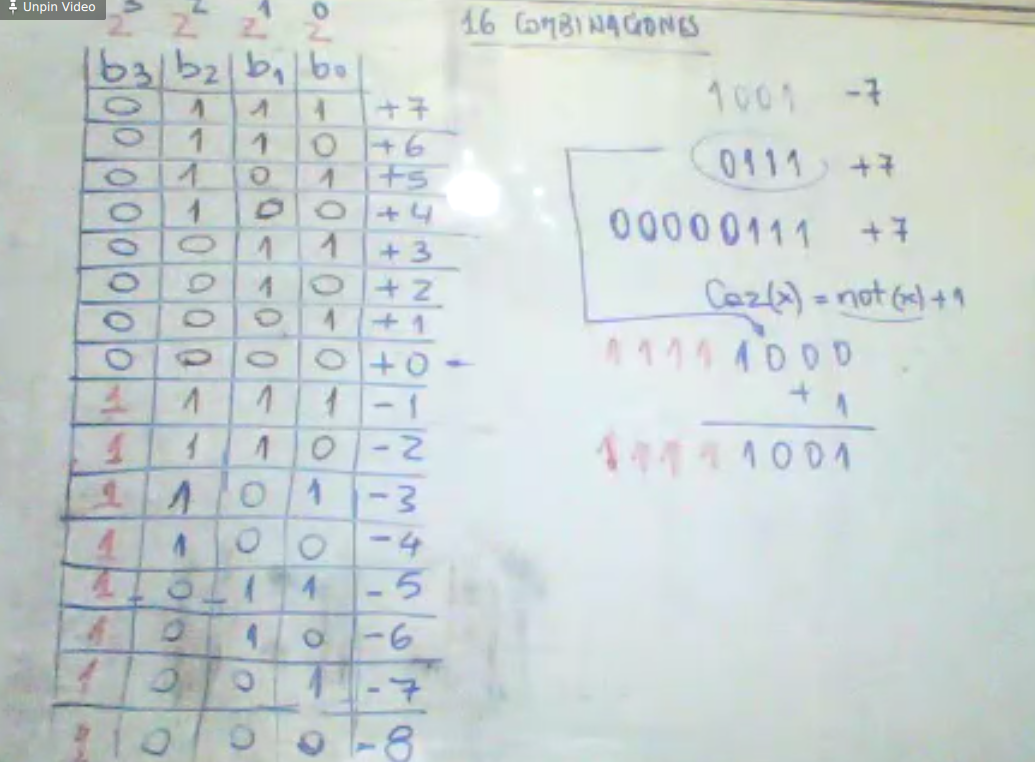 Unpin Video
2³ 2² 2¹ 2⁰
b3 b2 b1 b0
0 1 1 1 +7
0 1 1 0 +6
0 1 0 1 +5
0 1 0 0 +4
0 0 1 1 +3
0 0 1 0 +2
0 0 0 1 +1
0 0 0 0 +0 -
1 1 1 1 -1
1 1 1 0 -2
1 1 0 1 -3
1 1 0 0 -4
1 0 1 1 -5
1 0 1 0 -6
1 0 0 1 -7
1 0 0 0 -8
16 COMBINACIONES
1001 -7
0111 +7
00000111 +7
Ca2(x) = not(x) + 1
1111 1000
+ 1
1111 1001